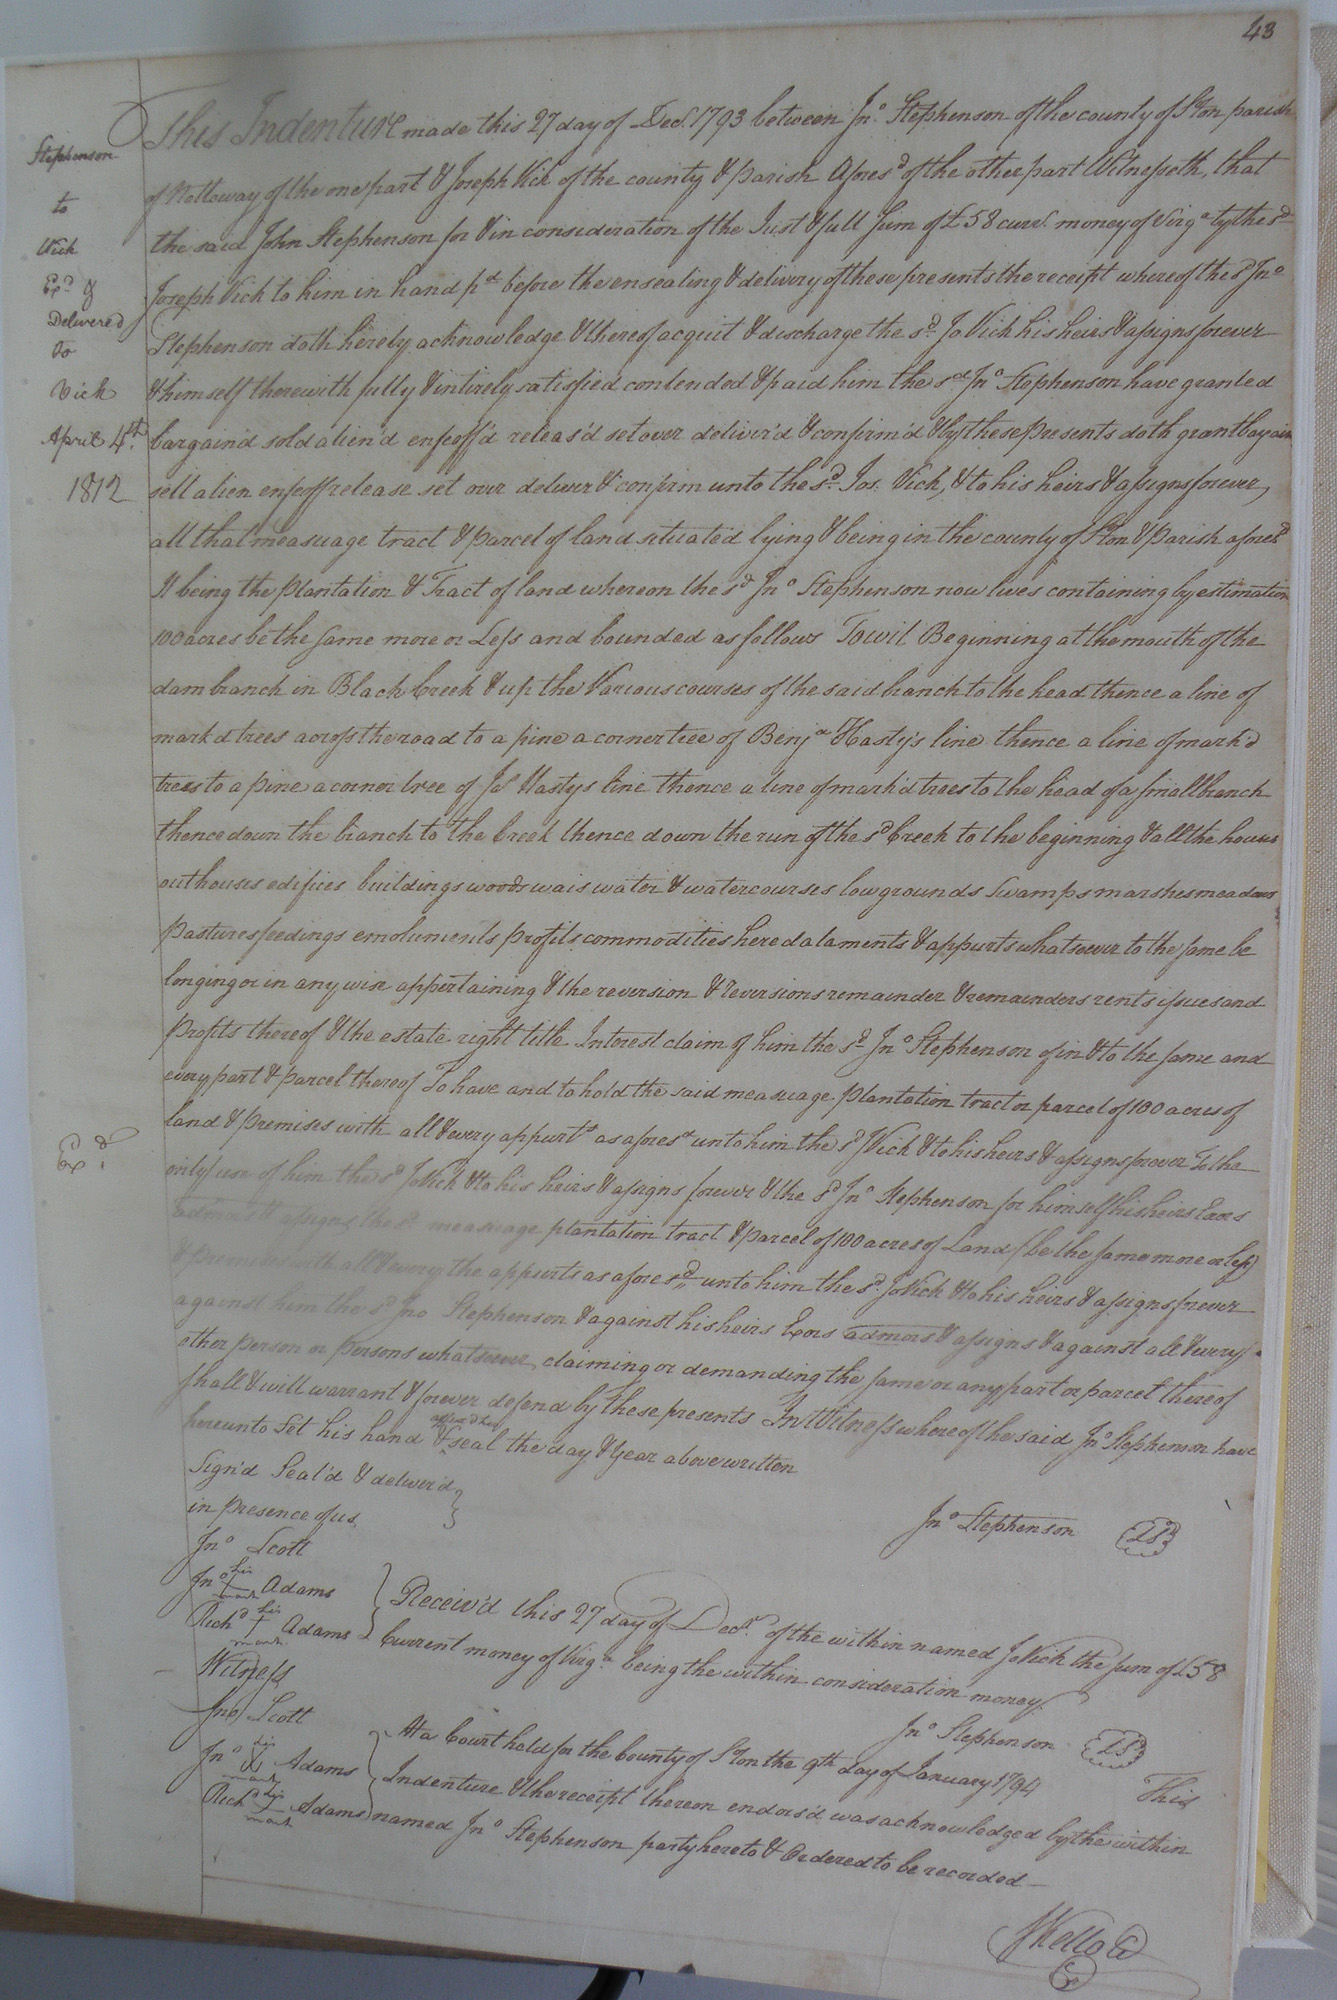 43
Stephenson
to
Vick
Exd &
Delivered
To
Vick
April 4th
1812
Exd
This Indenture made this 27 day of Decr. 1793 between Jno. Stephenson of the county of Ston parish
of Nottoway of the one part & Joseph Vick of the county & parish Aforesd of the other part Witnesseth, that
the said John Stephenson for & in consideration of the Just & full sum of £58 currt. money of Virga by the sd
Joseph Vick to him in hand pd before the ensealing & delivery of these presents the receipt whereof the sd Jno
Stephenson doth hereby acknowledge & thereof acquit & discharge the sd. Jo Vick his heirs & assigns forever
& himself therewith fully & intirely satisfied contended & paid him the sd Jno Stephenson have granted
bargain'd sold alien'd enfeoff'd releas'd set over deliver'd & confirm'd & by these presents doth grant bargain
sell alien enfeoff release set over deliver & confirm unto the sd. Jos. Vick, & to his heirs & assigns forever,
all that measuage tract & parcel of land situated lying & being in the county of Ston & Parish aforesd
It being the plantation & Tract of land whereon the sd Jno Stephenson now lives containing by estimation
100 acres be the same more or Less and bounded as follows Towit Beginning at the mouth of the
dam branch in Black Creek & up the Various courses of the said branch to the head thence a line of
mark'd trees across the road to a pine a corner tree of Benja Hasty's line thence a line of mark'd
trees to a pine a corner tree of Hastys line thence a line of mark'd trees to the head of a small branch
thence down the branch to the Creek thence down the run of the sd Creek to the beginning & all the houses
outhouses edifices buildings woods wais water & watercourses low grounds Swamps marshes meadows
Pastures feedings emoluments profits commodities heredataments & appurts whatsoever to the same be
longing or in any wise appertaining & the reversion & Reversions remainder & remainders rents issues and
Profits thereof & the estate right title Interest claim of him the sd Jno Stephenson of in & to the same and
every part & parcel thereof To have and to hold the said measuage plantation tract or parcel of 100 acres of
land & premises with all & every appurts as aforesd unto him the sd J Vick & to his heirs & assigns forever To the
only use of him the sd Jo Vick & to his heirs & assigns forever & the sd Jno Stephenson for himself his heirs Exors
admors & assigns the sd measuage plantation tract & parcel of 100 acres of Land (be the same more or less)
& premises with all & every the appurts as aforesd. unto him the sd. Jo Vick & to his heirs & assigns forever
against him the sd Jno Stephenson & against his heirs Exors admors & assigns & against all & every
other person or persons whatsoever claiming or demanding the same or any part or parcel thereof
shall & will warrant & forever defend by these presents In Witness whereof the said Jno Stephenson have
hereunto Set his hand & seal the day & year above written
Sign'd Seal'd & deliver'd
in presence of us
Jno Scott
Jno his mark Adams
Richd his mark Adams
Jno Stephenson LS
Receiv'd this 27 day of Decr. of the within named Jo Vick the sum of £58
Current money of Virga being the within consideration money
Witness
Jno Scott
Jno his mark Adams
Richd his mark Adams
Jno Stephenson LS
At a Court held for the County of Ston the 9th day of January 1794 This
Indenture & the receipt thereon endors'd was acknowledged by the within
named Jno Stephenson party hereto & Ordered to be recorded